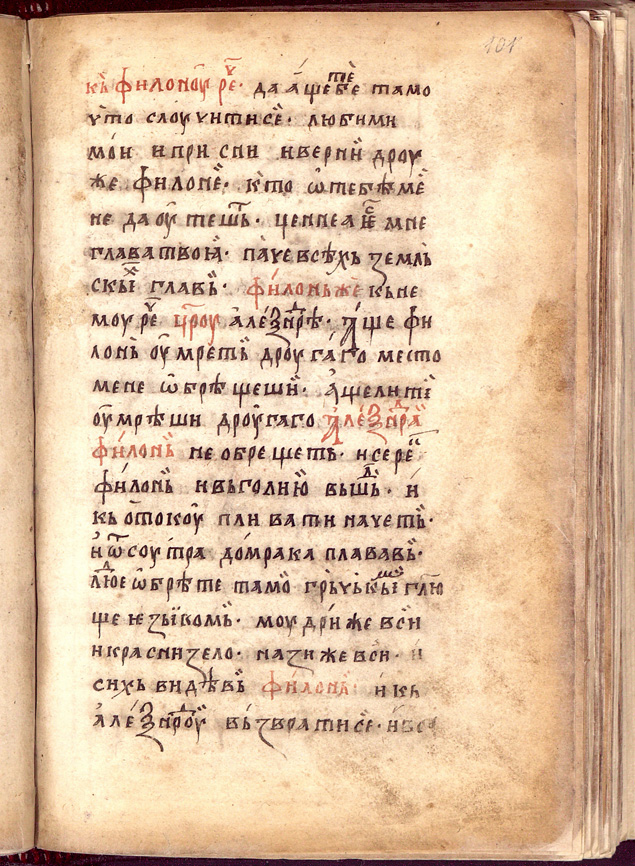 101
къ филонѹ реⱱ҇· да аще бѣⷮе тамо
что слоучитисе· любими
мои и присни и верни дроу
же филоне· кто ѡ тебѣ ме
не да оутешитъ· ценнеа ѥⷭ мне
глава твоꙗ· паче всѣхъ земль
скыⷯ главь· филонь же кь не
моу реⱱ҇ цр҃оу алеѯанⷣрѣ· аще фи
лонь оумреть дроугаго место
мене ѡбрѣщеши· аще ли ти
оумрѣши дроугаго алеѯанⷣра
филонь не обрещеть· и се реⷱ
филонь и вь голию вьшⷣь· и
кь ѻтокоу пливати начеть·
и ѿ соутра до мрака плававь·
люⷣе ѡбрѣте тамо грьчьскыⷨ гл҃ю
ще ѥзыкомь· моудри же вси
и красни зело· нази же вси· и
сихь видѣвь филонь· и кь
алеѯанⷣроу вьзвратисе·